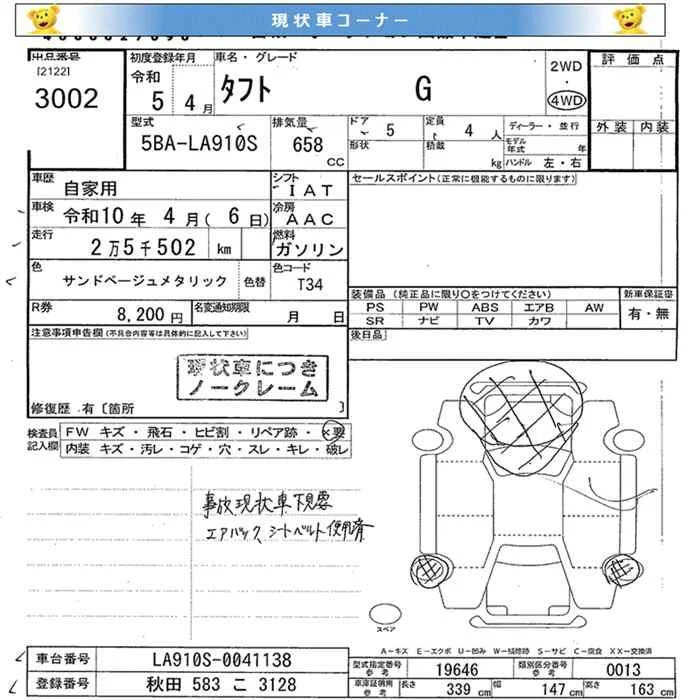 現状車コーナー
出品番号
[2122]
3002
初度登録年月
令和
5 4月
車名・グレード
タフト G
2WD
・
4WD
評価点
外装 内装
型式
5BA-LA910S
排気量
658
CC
ドア 5
形状
定員 4 人
積載 kg
ディーラー・並行
モデル年式 年
ハンドル 左・右
車歴 自家用
シフト IAT
セールスポイント(正常に機能するものに限ります)
車検 令和10年 4月( 6日)
冷房 AAC
走行 2万5千502 km
燃料 ガソリン
色 サンドベージュメタリック
色替
色コード T34
装備品 (純正品に限り○をつけてください)
新車保証書
PS PW ABS エアB AW
有・無
SR ナビ TV カワ
R券 8,200円
名変通知期限
月 日
後日品
注意事項申告欄(不具合内容等は具体的に記入して下さい)
現状車につき
ノークレーム
修復歴 有〔箇所 〕
検査員
記入欄
FW キズ・飛石・ヒビ割・リペア跡・×要
内装 キズ・汚レ・コゲ・穴・スレ・キレ・破レ
事故現状車下見要
エアバック、シートベルト使用済
スペア
A-キズ E-エクボ U-凹み W-補修跡 S-サビ C-腐食 XX-交換済
車台番号 LA910S-0041138
型式指定番号
参考
19646
類別区分番号
参考
0013
登録番号 秋田 583 こ 3128
車庫証明用
参考
長さ 339 cm
幅 147 cm
高さ 163 cm